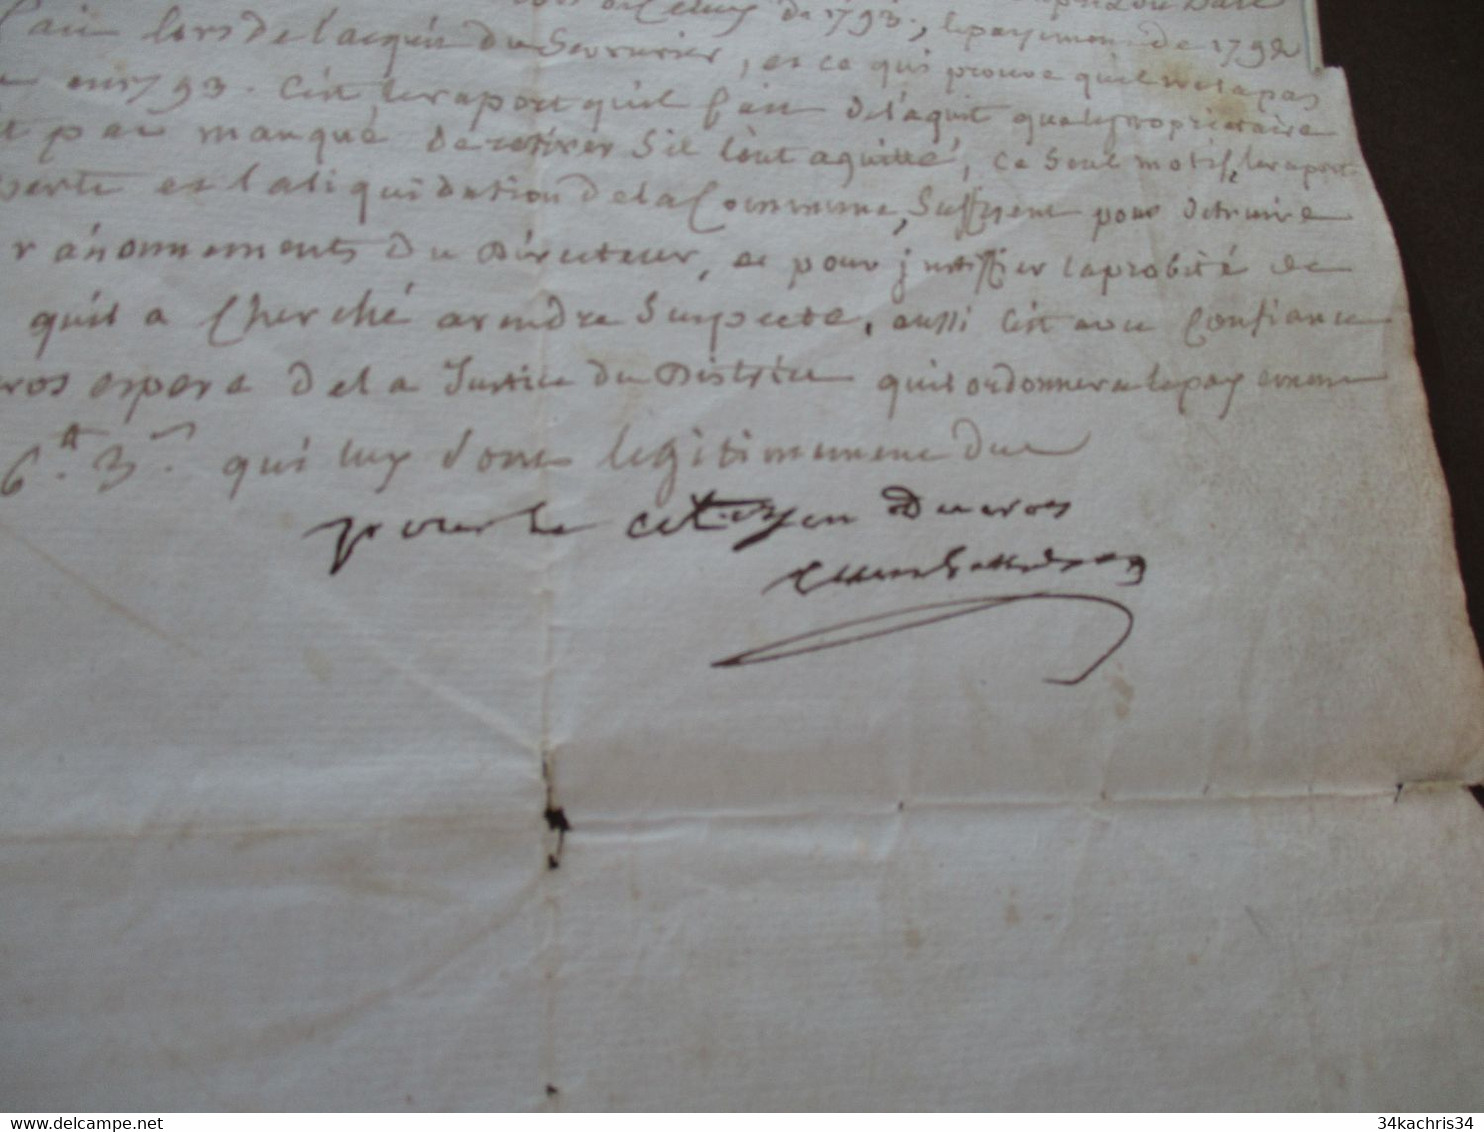 de Celuy de 1793, le payement de 1792
lors de l'acquit du Serrurier, et ce qui prouve qu'il n'est apas
en 1793. C'est le raport qu'il fait de l'aquit que le propriettaire
pas manqué de retirer s'il l'eut aquitté, ce seul motif, le raport
est la liquidation de la Commune, suffisent pour detruire
du Directeur, et pour justiffier la probité de
qu'il a Cherché a rendre Suspecte, aussi c'est avec Confiance
ros espere de la Justice du District qu'il ordonnera le payement
6.# 3.s qui luy sont legitimement due
pour le citoyen Ducros
34kachris34